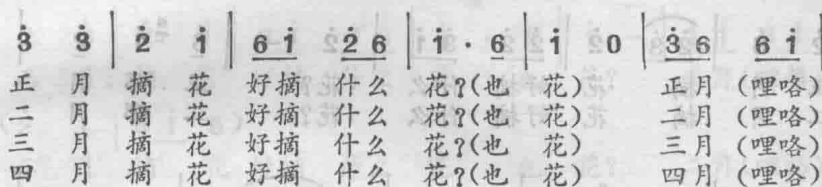 3̇ 3̇ | 2̇ 1̇ | 6 1̇ 2̇ 6 | 1̇ · 6 | 1̇ 0 | 3̇ 6 6 1̇
正 月 摘 花 好摘 什么 花?(也 花) 正月 (哩咯)
二 月 摘 花 好摘 什么 花?(也 花) 二月 (哩咯)
三 月 摘 花 好摘 什么 花?(也 花) 三月 (哩咯)
四 月 摘 花 好摘 什么 花?(也 花) 四月 (哩咯)